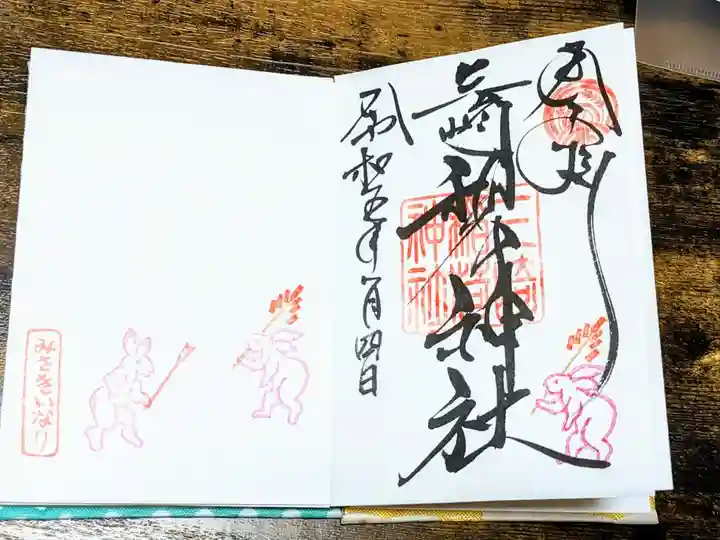 奉拝
三崎稲荷神社
三崎稲荷神社
令和五年一月四日
みさきいなり